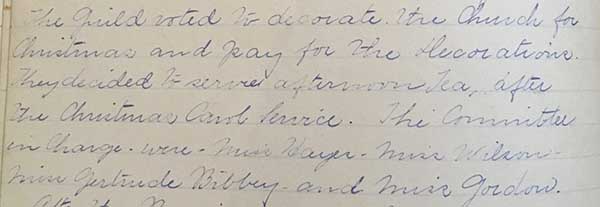 The Guild voted to decorate. the Church for
Christmas and pay for the decorations.
They decided to serve afternoon Tea, after
the Christmas Carol Service. The Committee
in Charge - were - Miss Hayer - Miss Wilson -
Miss Gertrude Bibbey - and Miss Gordon.
After the